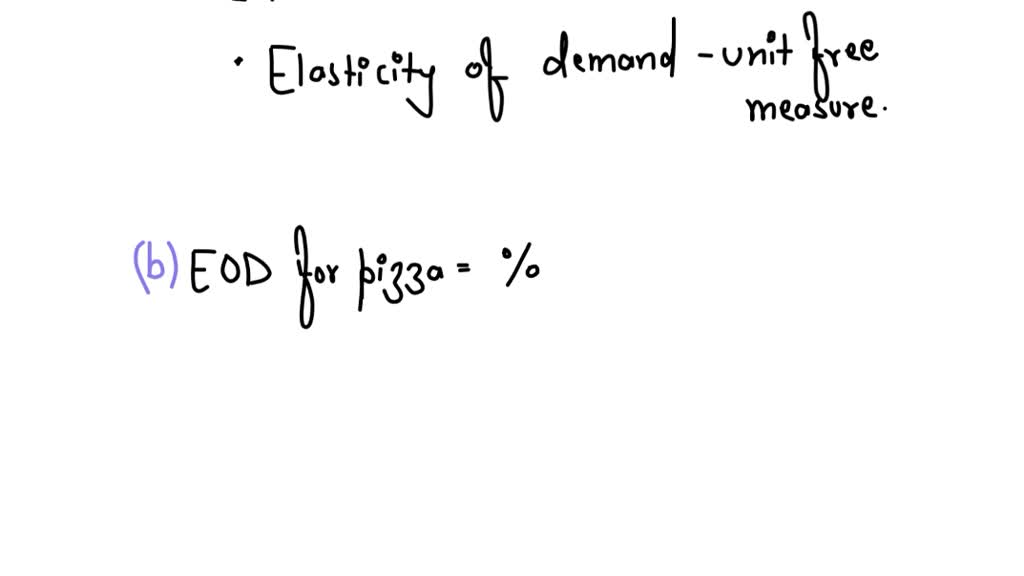 • Elasticity of demand - unit free
measure.
(b) EOD for pizza = %